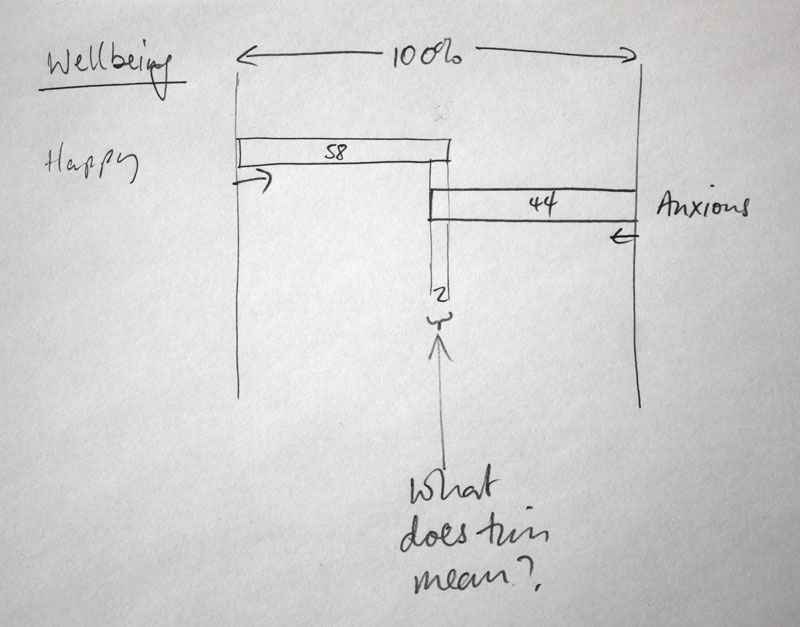 Wellbeing
100%
Happy
58
44
Anxious
2
What
does this
mean?